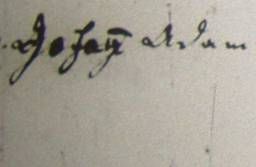 Johañ Adam